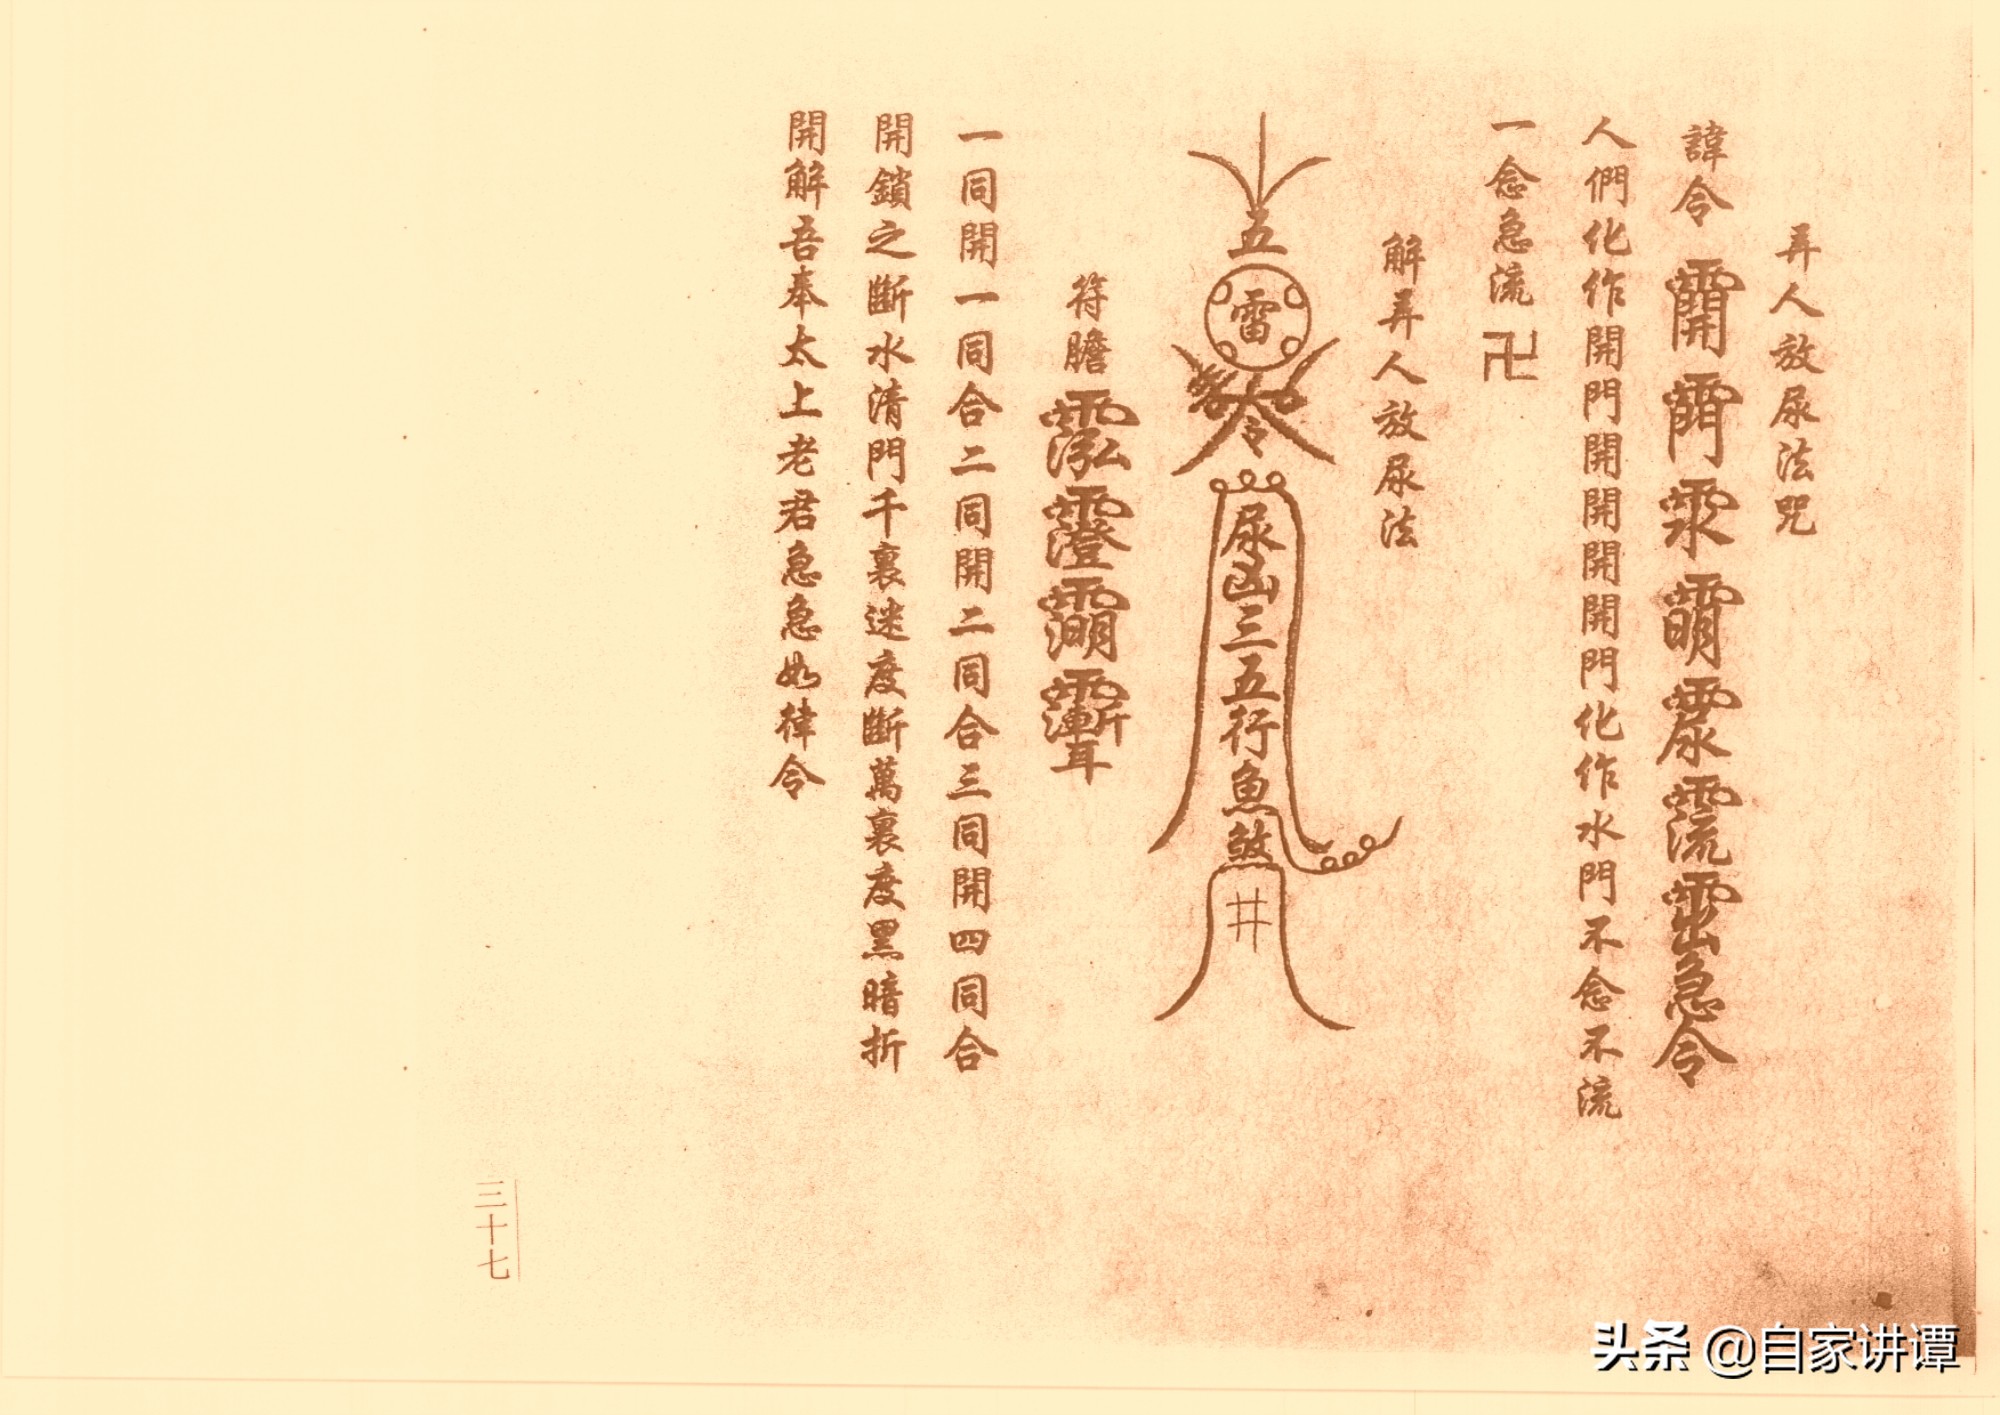 弄人放尿法咒
諱令 急令
人們化作開門開開開開門化作水門不念不流
一念急流卍
解弄人放尿法
五雷令尿凶三五行魚煞井
符膽
一同開一同合二同開二同合三同開四同合
開鎖之斷水清門千裏迷度斷萬裏度黑暗折
開解吾奉太上老君急急如律令
三十七
头条 @自家讲谭